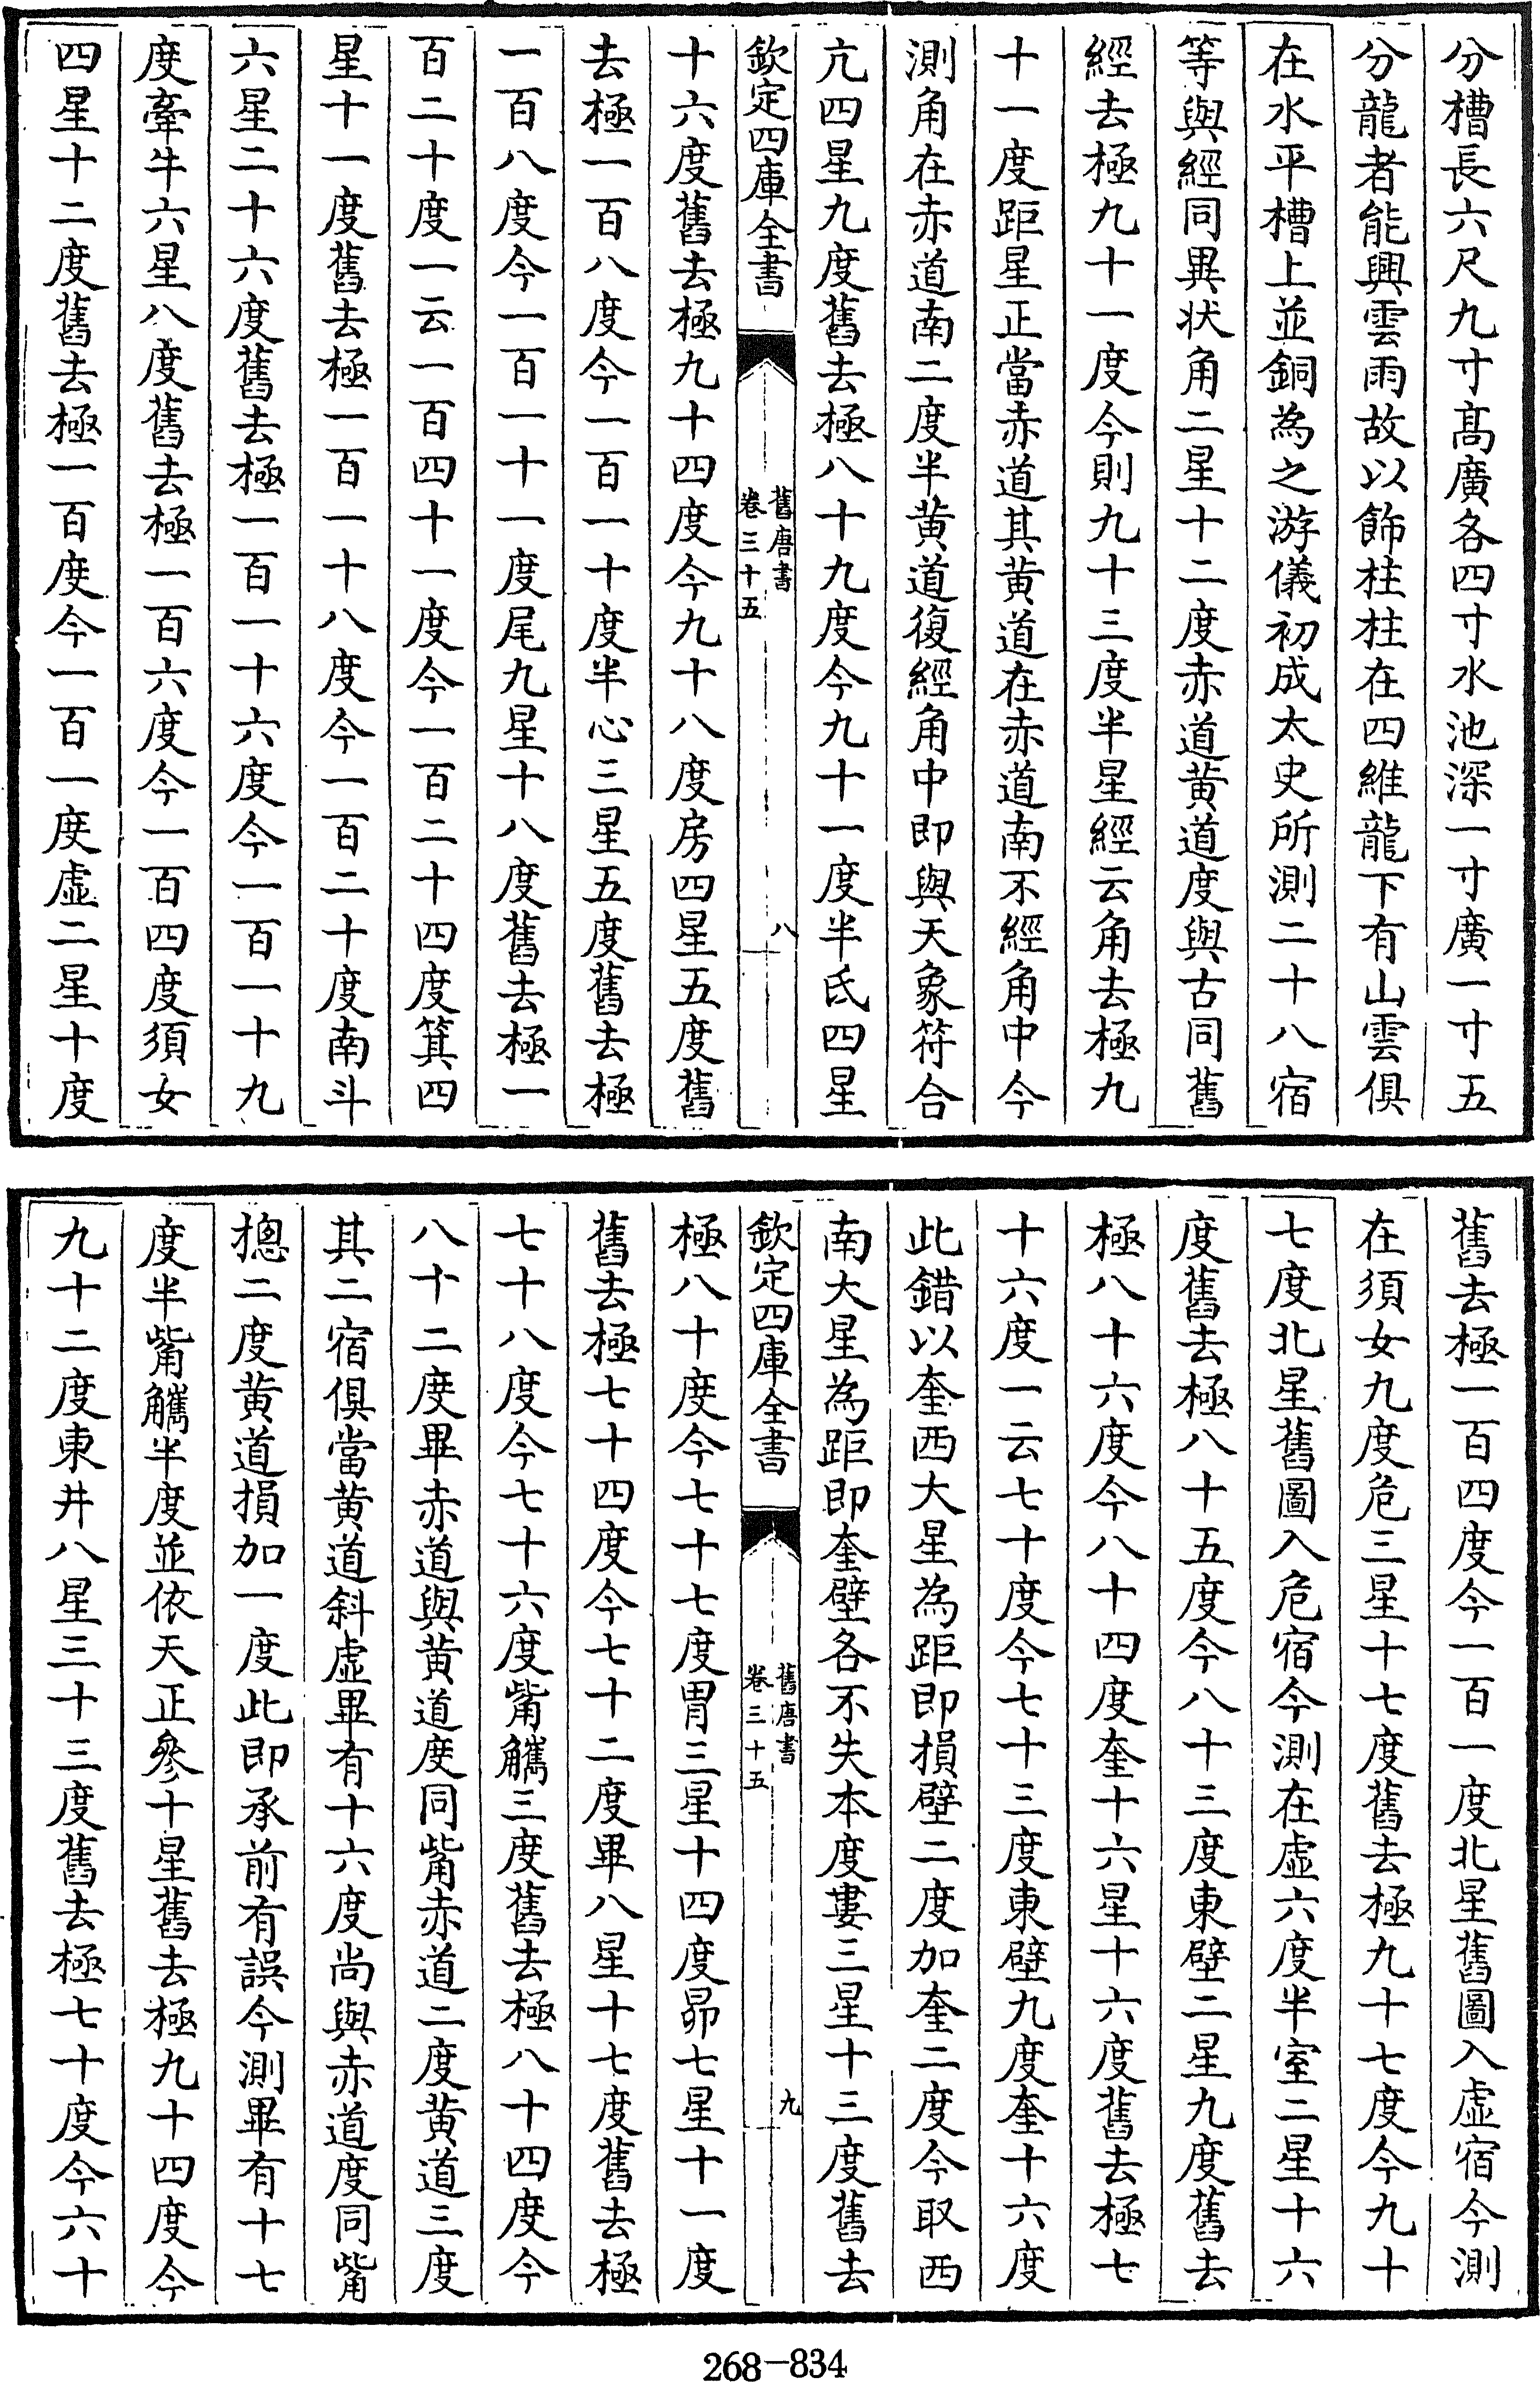 分槽長六尺九寸髙廣各四寸水池深一寸廣一寸五
分龍者能興雲雨故以飾柱柱在四維龍下有山雲俱
在水平槽上並銅為之游儀初成太史所測二十八宿
等與經同異状角二星十二度赤道黄道度與古同舊
經去極九十一度今則九十三度半星經云角去極九
十一度距星正當赤道其黄道在赤道南不經角中今
測角在赤道南二度半黄道復經角中即與天象符合
亢四星九度舊去極八十九度今九十一度半氐四星
欽定四庫全書
舊唐書
卷三十五
八
十六度舊去極九十四度今九十八度房四星五度舊
去極一百八度今一百一十度半心三星五度舊去極
一百八度今一百一十一度尾九星十八度舊去極一
百二十度一云一百四十一度今一百二十四度箕四
星十一度舊去極一百一十八度今一百二十度南斗
六星二十六度舊去極一百一十六度今一百一十九
度牽牛六星八度舊去極一百六度今一百四度須女
四星十二度舊去極一百度今一百一度虛二星十度
舊去極一百四度今一百一度北星舊圖入虛宿今測
在須女九度危三星十七度舊去極九十七度今九十
七度北星舊圖入危宿今測在虛六度半室二星十六
度舊去極八十五度今八十三度東壁二星九度舊去
極八十六度今八十四度奎十六星十六度舊去極七
十六度一云七十度今七十三度東壁九度奎十六度
此錯以奎西大星為距即損壁二度加奎二度今取西
南大星為距即奎壁各不失本度婁三星十三度舊去
欽定四庫全書
舊唐書
卷三十五
九
極八十度今七十七度胃三星十四度昴七星十一度
舊去極七十四度今七十二度畢八星十七度舊去極
七十八度今七十六度觜觿三度舊去極八十四度今
八十二度畢赤道與黄道度同觜赤道二度黄道三度
其二宿俱當黄道斜虛畢有十六度尚與赤道度同觜
摠二度黄道損加一度此即承前有誤今測畢有十七
度半觜觿半度並依天正參十星舊去極九十四度今
九十二度東井八星三十三度舊去極七十度今六十
268-834